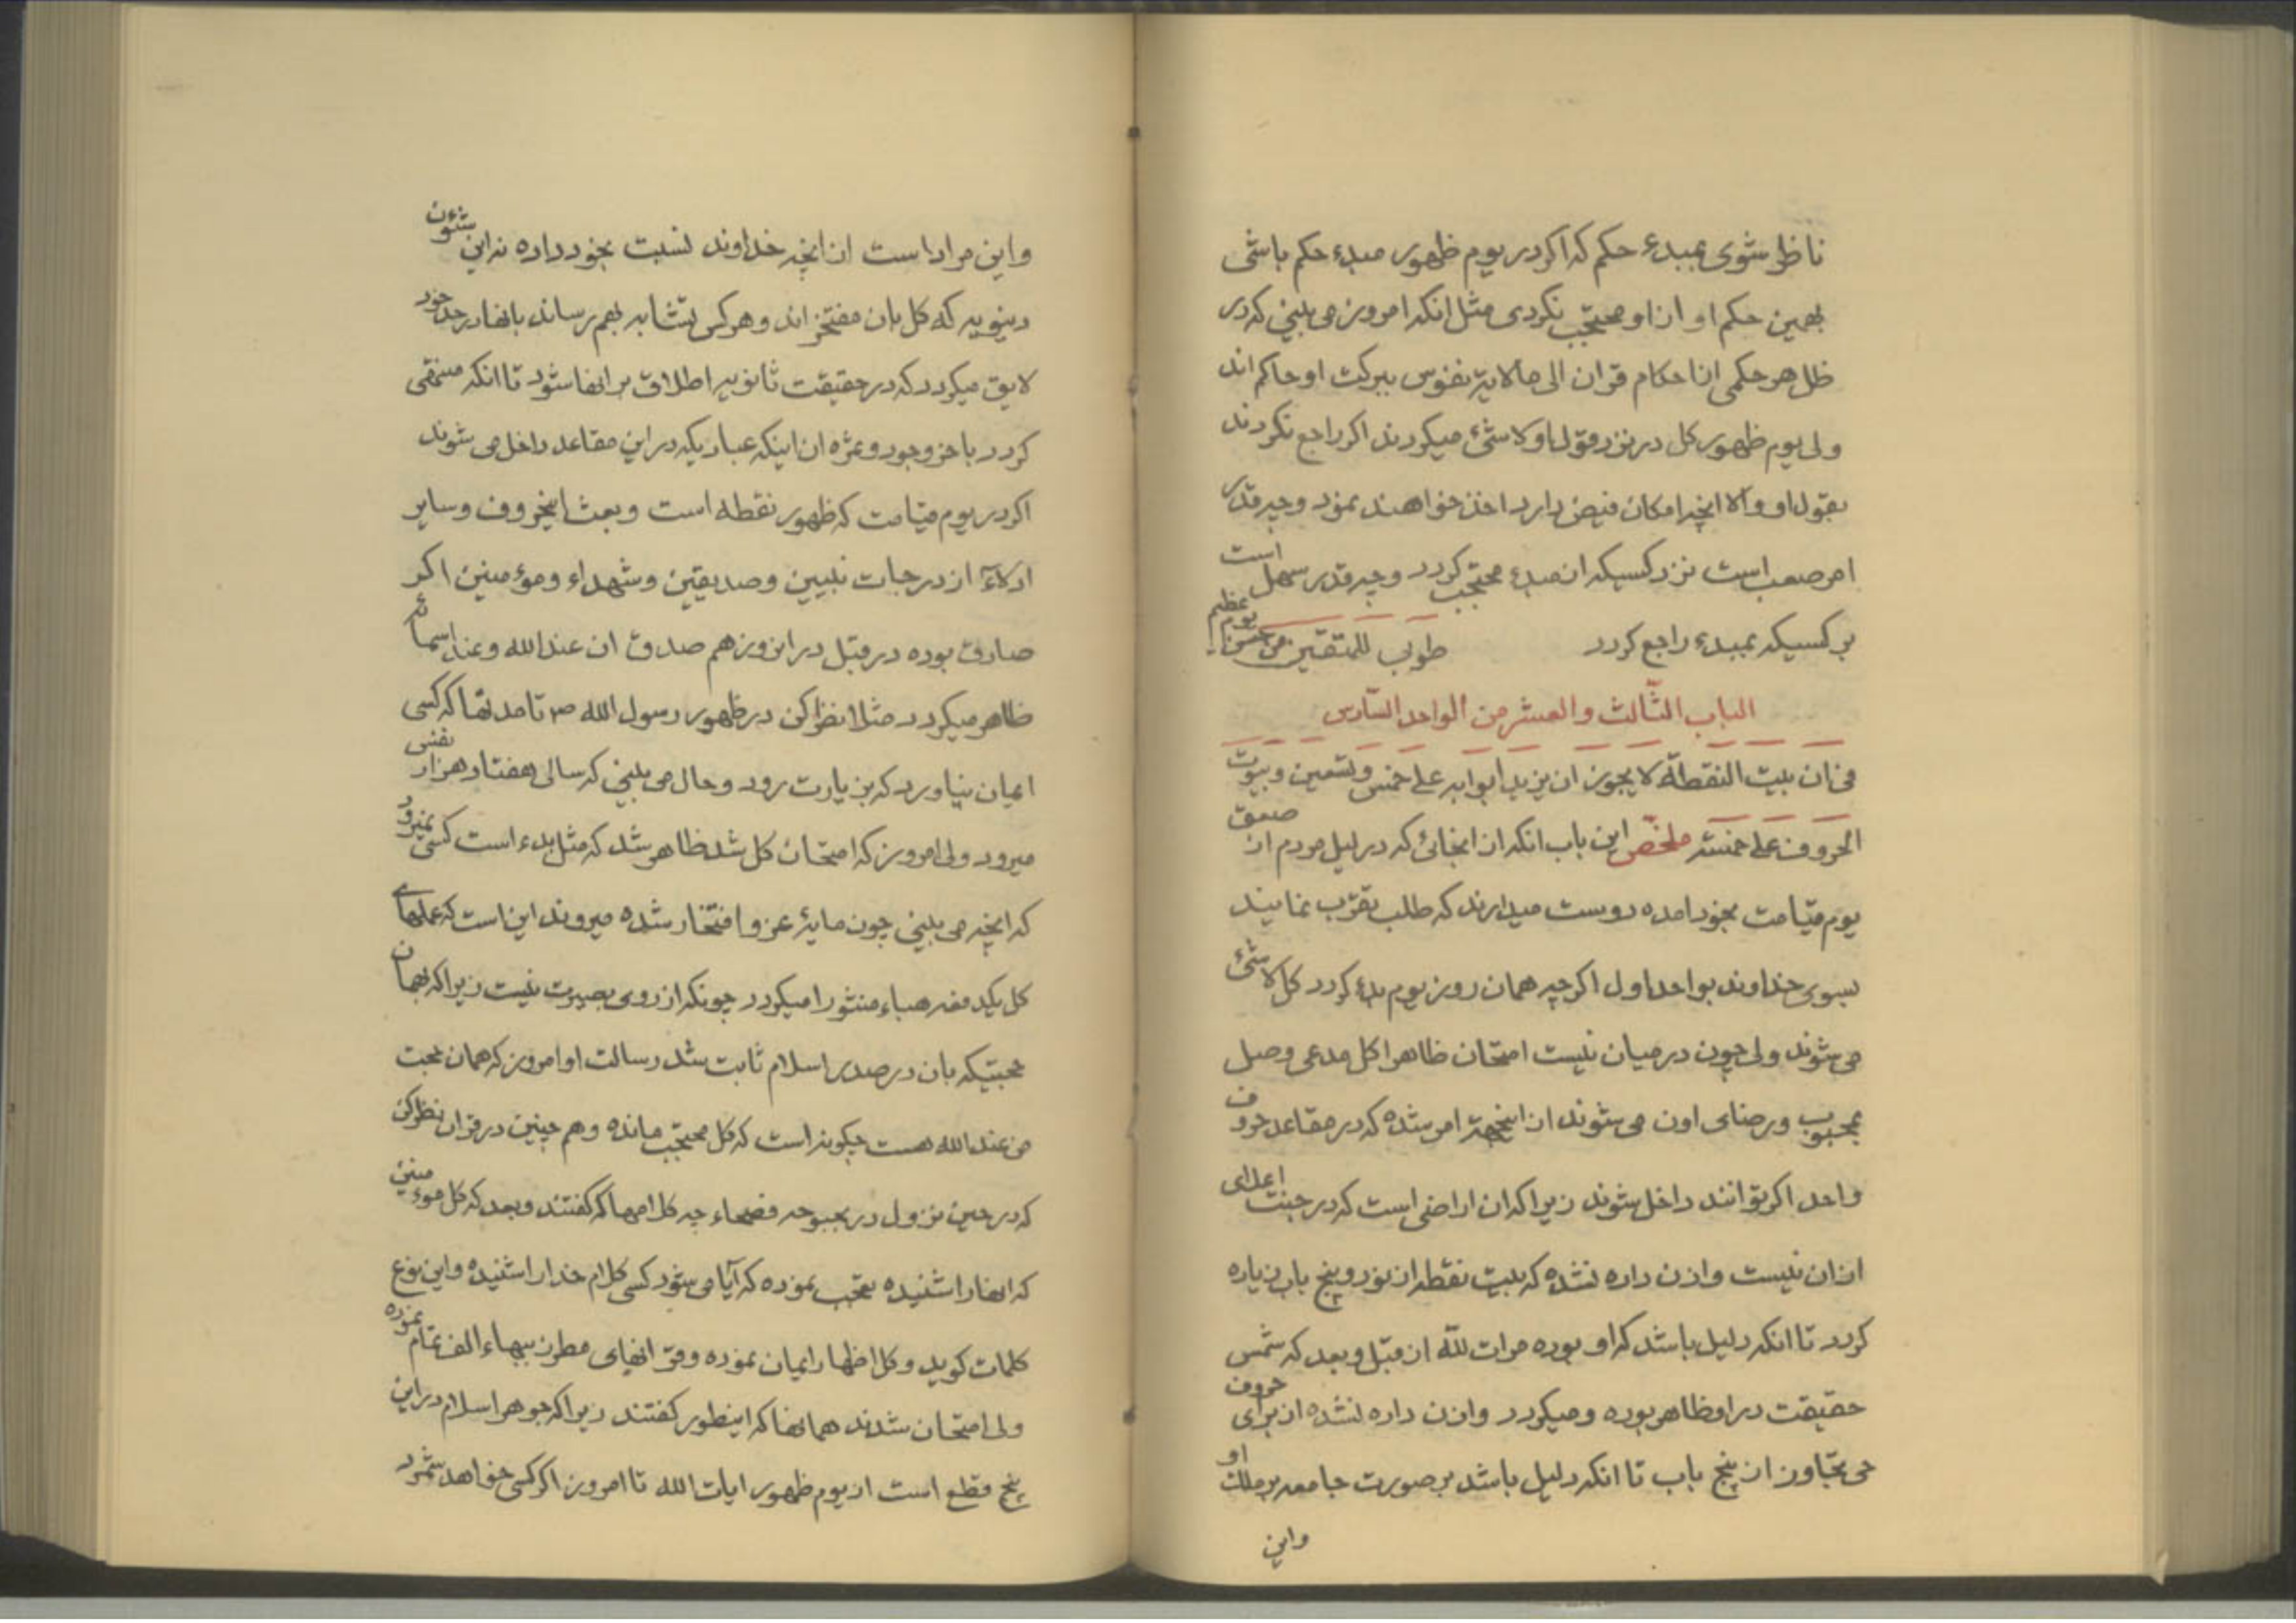 ناظر شوی بمبدء حکم که اکر در یوم ظهور مبدء حکم باشی
بهمین حکم او از او محتجب نکردی مثل انکه امروز می بینی که در
ظل هر حکمی از احکام قران الی مالا یه نفوس ببرکت او حاکم اند
ولی یوم ظهور کل در نزد قول او لا شئ میکردند اکر راجع نکردند
بقول او والا انچه امکان فیض دارد اخذ خواهند نمود وچه قدر
امر صعب است نزد کسیکه از مبدء محتجب کردد وچه قدر سهل است
بر کسیکه بمبدء راجع کردد طوبی للمتقین من حسن یوم عظیم
الباب الثالث والعشر من الواحد السادس
فی ان بیت النقطة لا یجوز ان یزید ابوابه علی خمس وتسعین وبیوت
الحروف علی خمسة ملخص این باب انکه از انجائی که در لیل مردم از صعق
یوم قیامت بخود امده دوست میدارند که طلب تقرب نمایند
بسوی خداوند بواحد اول اکرچه همان روز یوم بدء کردد کل لا شئ
می شوند ولی چون در میان نیست امتحان ظاهرا کل مدعی وصل
بمحبوب ورضای اون می شوند از اینجهة امر شده که در مقاعد حروف
واحد اکر توانند داخل شوند زیرا که ان اراضی است که در جنت اعلای
از ان نیست واذن داده نشده که بیت نقطه از نود وپنج باب زیاده
کردد تا انکه دلیل باشد که او بوده مرات لله از قبل وبعد که شمس
حقیقت در او ظاهر بوده ومیکردد واذن داده نشده از برای حروف
حی تجاوز از پنج باب تا انکه دلیل باشد بر صورت جامعه بر ملک او
واین
واین مراد است از انچه خداوند نسبت بخود داده نه این شئون
دینویه که کل بان مفتخر اند وهر کس تشابه بهم رساند بانها در حد خود
لایق میکردد که در حقیقت ثانویه اطلاق بر انها شود تا انکه منتهی
کردد باخر وجود وثمره ان اینکه عبادیکه در این مقاعد داخل می شوند
اکر در یوم قیامت که ظهور نقطه است وبعث اینحروف وسایر
ادلاء از درجات نبیین وصدیقین وشهداء ومؤمنین اکر
صادق بوده در قبل در انروز هم صدق ان عند الله وعند اسمائه
ظاهر میکردد مثلا نظر کن در ظهور رسول الله ص تا مدتها که کسی
ایمان نیاورد که بزیارت رود وحال می بینی که سالی هفتاد هزار نفس
میرود ولی امروز که امتحان کل شد ظاهر شد که مثل بدء است کسی نمیرود
که انچه می بینی چون مایۀ عز وافتخار شده میروند این است که عملهای
کل یکدفعه هباء منثورا میکردد چونکه از روی بصیرت نیست زیرا که بهمان
حجتیکه بان در صدر اسلام ثابت شد رسالت او امروز که همان حجت
من عند الله هست چکونه است که کل محتجب مانده وهم چنین در قران نظر کن
که در حین نزول در بحبوحه فصحاء چه کلامها که کفتند وبعد که کل مؤمنین
که انها را شنیده تعجب نموده که آیا می شود کسی کلام خدا را شنیده واین نوع
کلمات کوید وکل اظهار ایمان نموده وقر انهای مطرز ببهاء الف تمام نموده
ولی امتحان شدند همانها که اینطور کفتند زیرا که جوهر اسلام در این
پنج قطع است از یوم ظهور ایات الله تا امروز اکر کسی خواهد شمرد